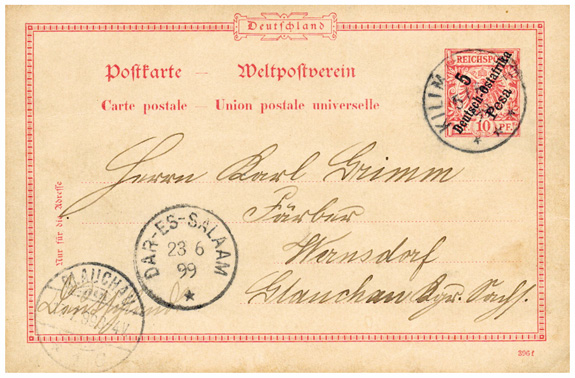 Deutschland
Postkarte — Weltpostverein
Carte postale — Union postale universelle
REICHSPOST
5
Deutsch-Ostafrika
Pesa
10
KILIM
Nur für die Adresse
Herrn Karl Grimm
Färber
Wernsdorf
Glauchau Kgr. Sachs.
DAR-ES-SALAAM
23 6
99
GLAUCHAU
396f